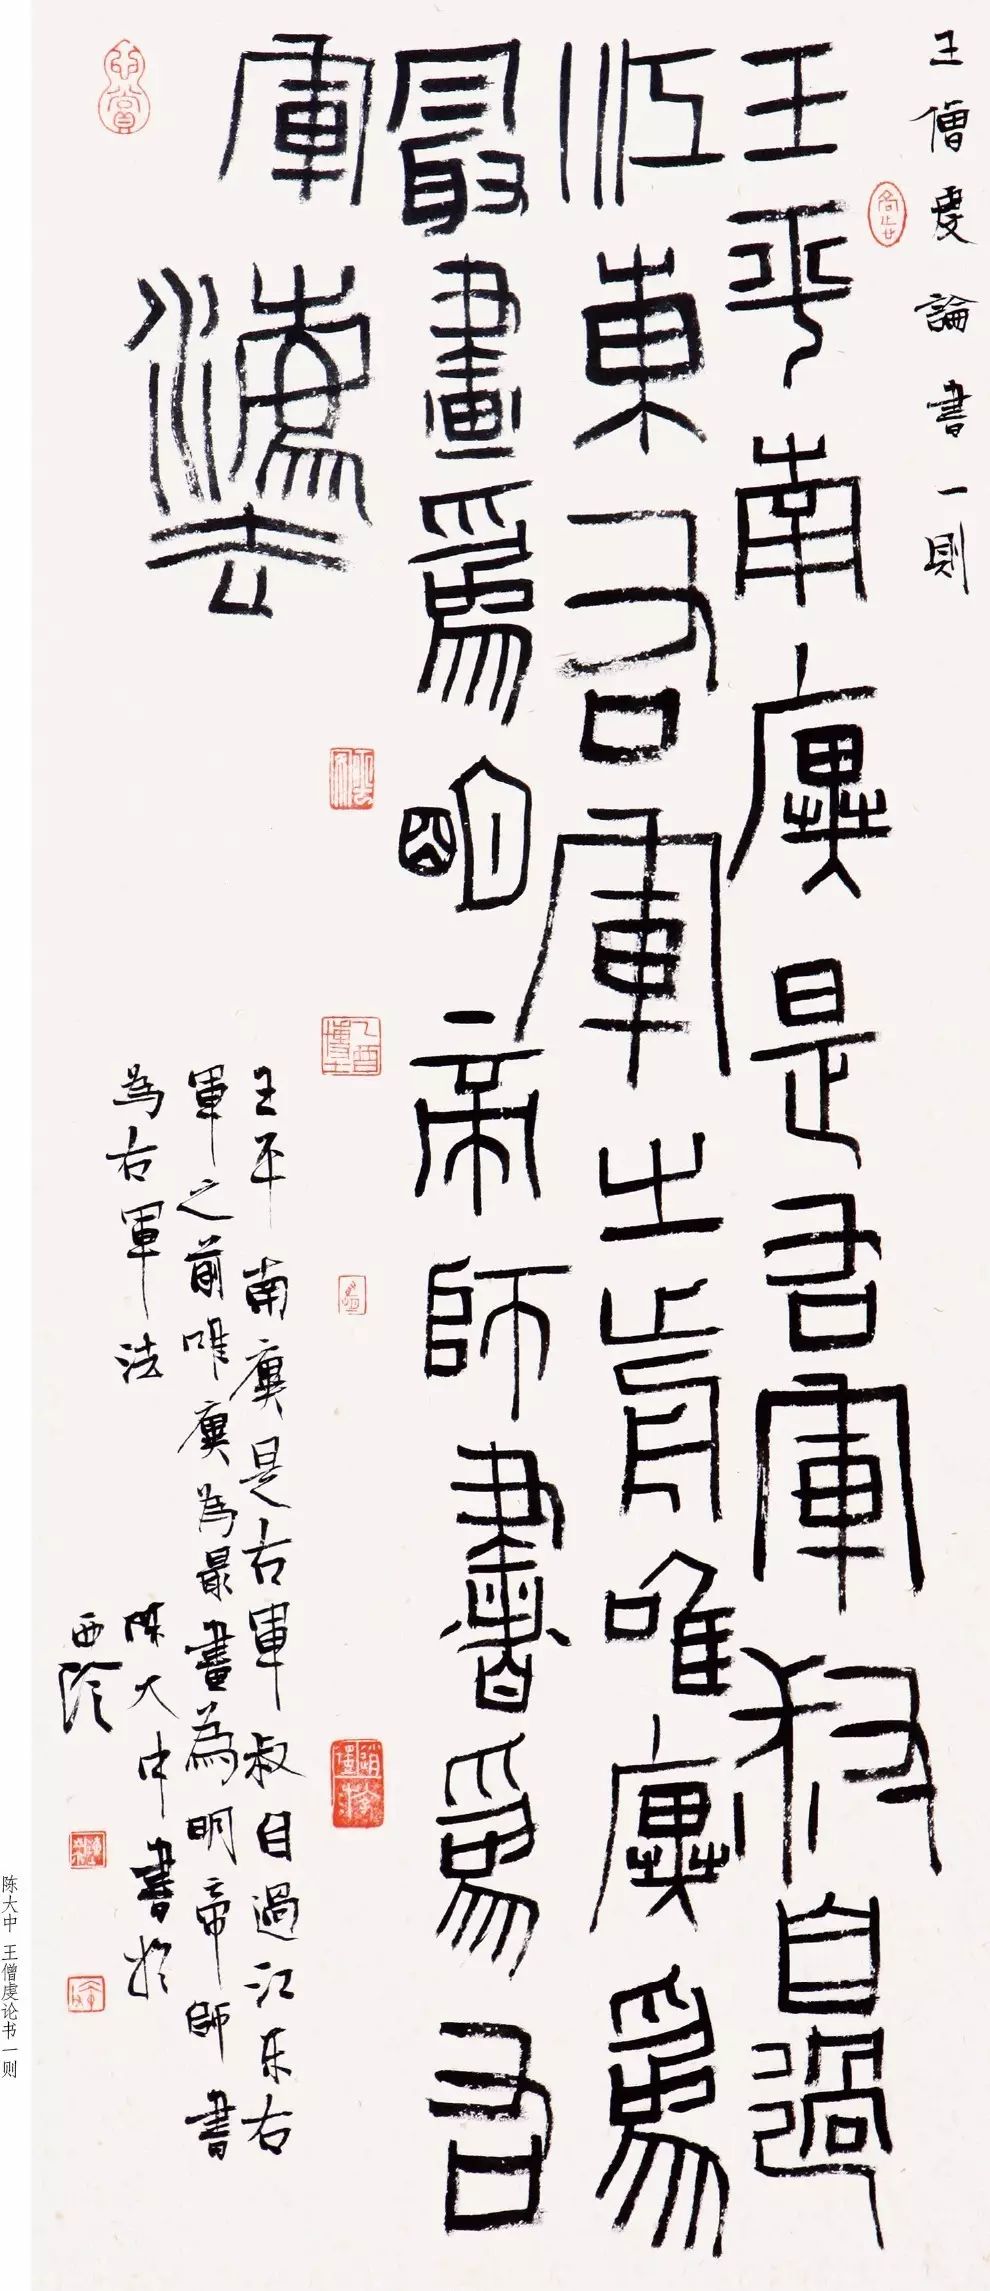 王僧虔論書一則
王平南廙是右軍叔自過
江東右軍之前唯廙爲
最畫爲明帝師書爲右
軍灋
王平南廙是右軍叔自過江东右
軍之前唯廙為最畫為明帝師書
為右軍法
陈大中書於
西泠
陈大中 王僧虔论书一则